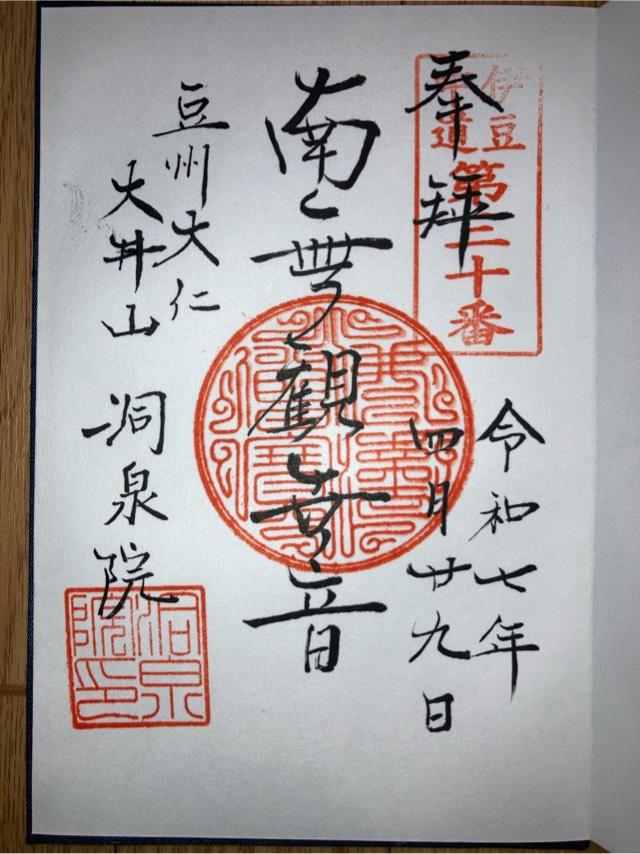 奉拝
伊豆
道
第二十番
令和七年
四月廿九日
南無觀世音
豆州大仁
大井山 洞泉院
洞泉
院印